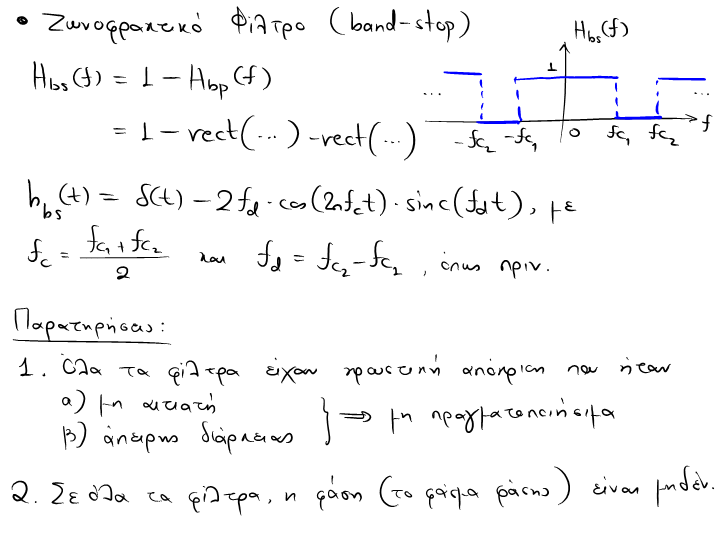 • Ζωνοφρακτικό Φίλτρο (band-stop)
H_bs(f) = 1 - H_bp(f)
= 1 - rect(...) - rect(...)
H_bs(f)
1
... ...
-fc₂ -fc₁ 0 fc₁ fc₂ f
h_bs(t) = δ(t) - 2f_d · cos(2πf_ct) · sinc(f_dt), με
f_c = (fc₁ + fc₂)/2 και f_d = fc₂ - fc₂, όπως πριν.
Παρατηρήσεις:
1. Όλα τα φίλτρα είχαν κρουστική απόκριση που ήταν
α) μη αιτιατή
β) άπειρης διάρκειας } ⟹ μη πραγματοποιήσιμα
2. Σε όλα τα φίλτρα, η φάση (το φάσμα φάσης) είναι μηδέν.